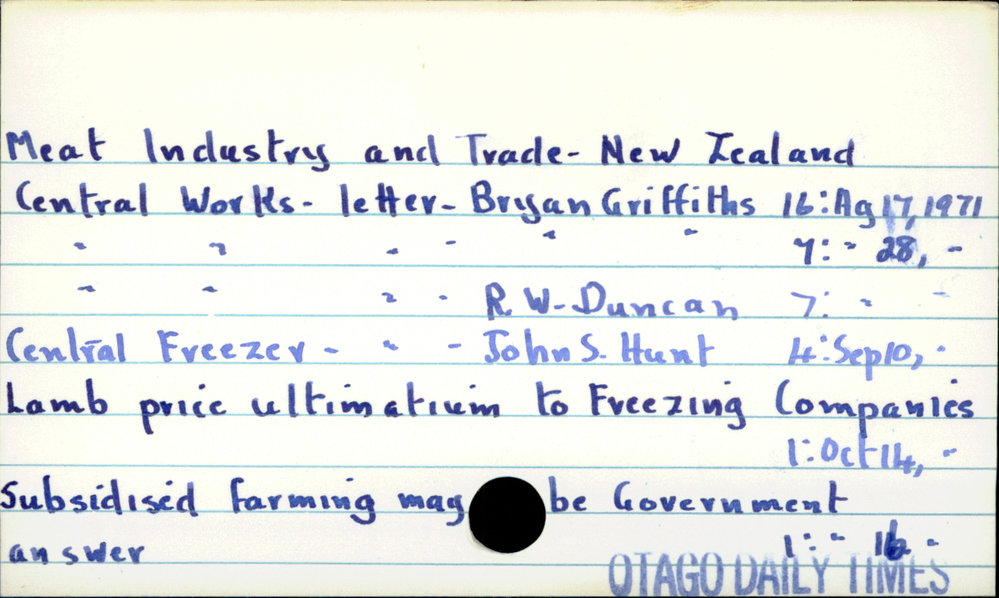 Meat Industry and Trade - New Zealand
Central Works - letter - Bryan Griffiths 16: Ag 17, 1971
" " " - " " 7: " 28, "
" " " - R W. Duncan 7: " "
Central Freezer - " - John S. Hunt 4: Sep 10, "
Lamb price ultimatium to Freezing Companies
1: Oct 14, "
Subsidised farming may be Government
answer 1: " 16 "
OTAGO DAILY TIMES